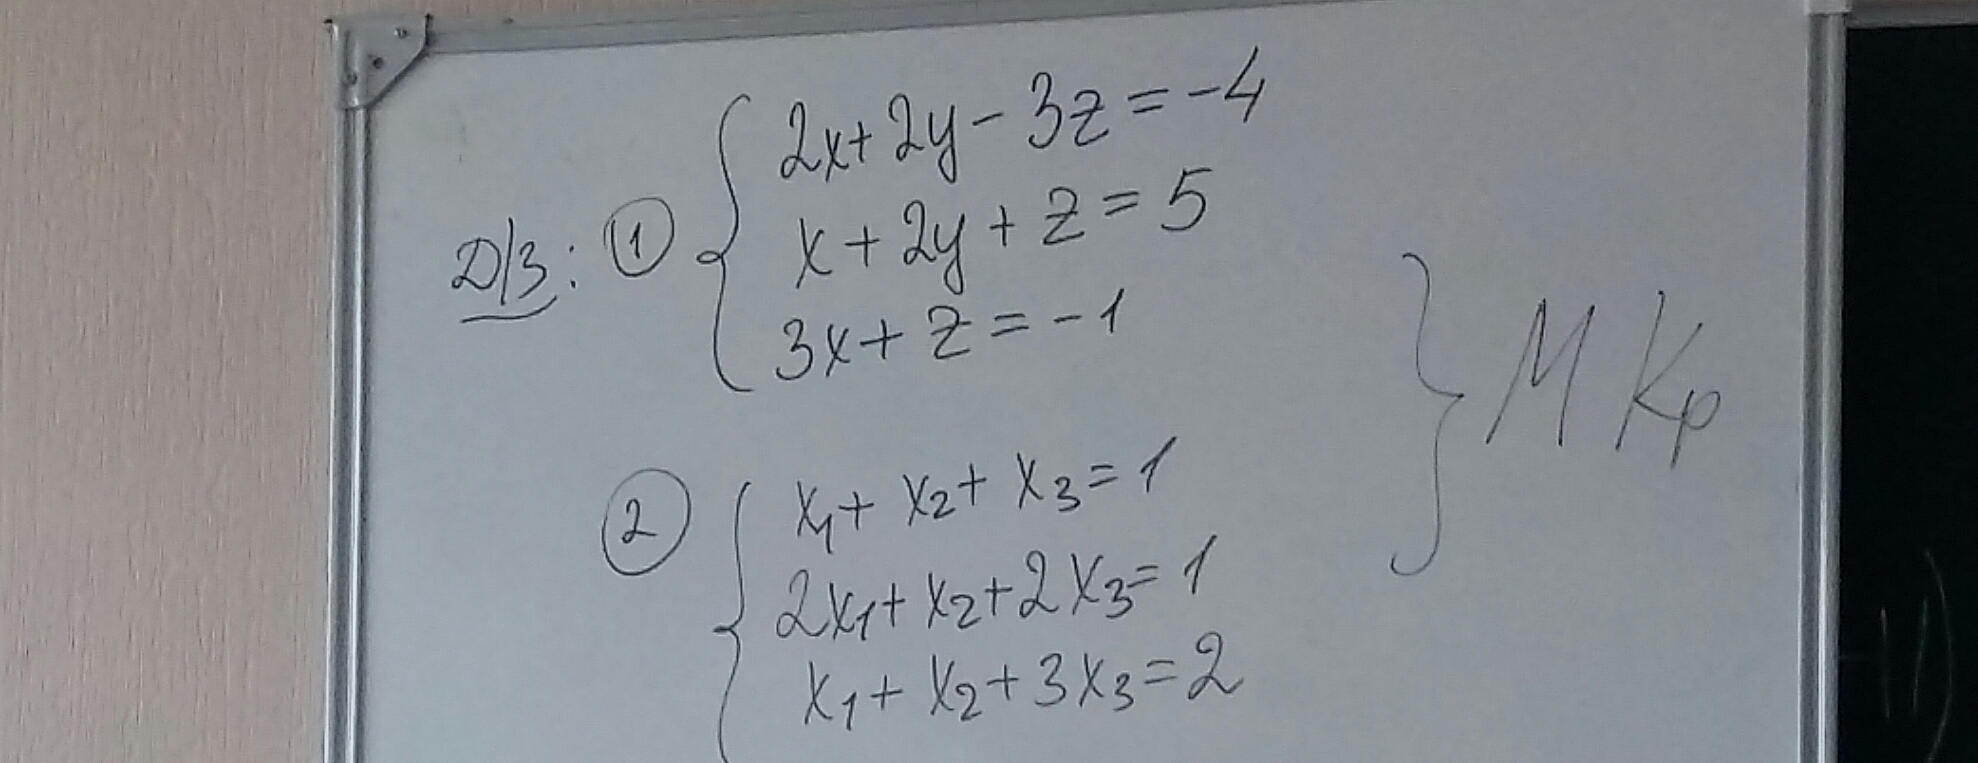 Д/З: ① { 2x + 2y - 3z = -4
x + 2y + z = 5
3x + z = -1
} М Кр
② { x₁ + x₂ + x₃ = 1
2x₁ + x₂ + 2x₃ = 1
x₁ + x₂ + 3x₃ = 2